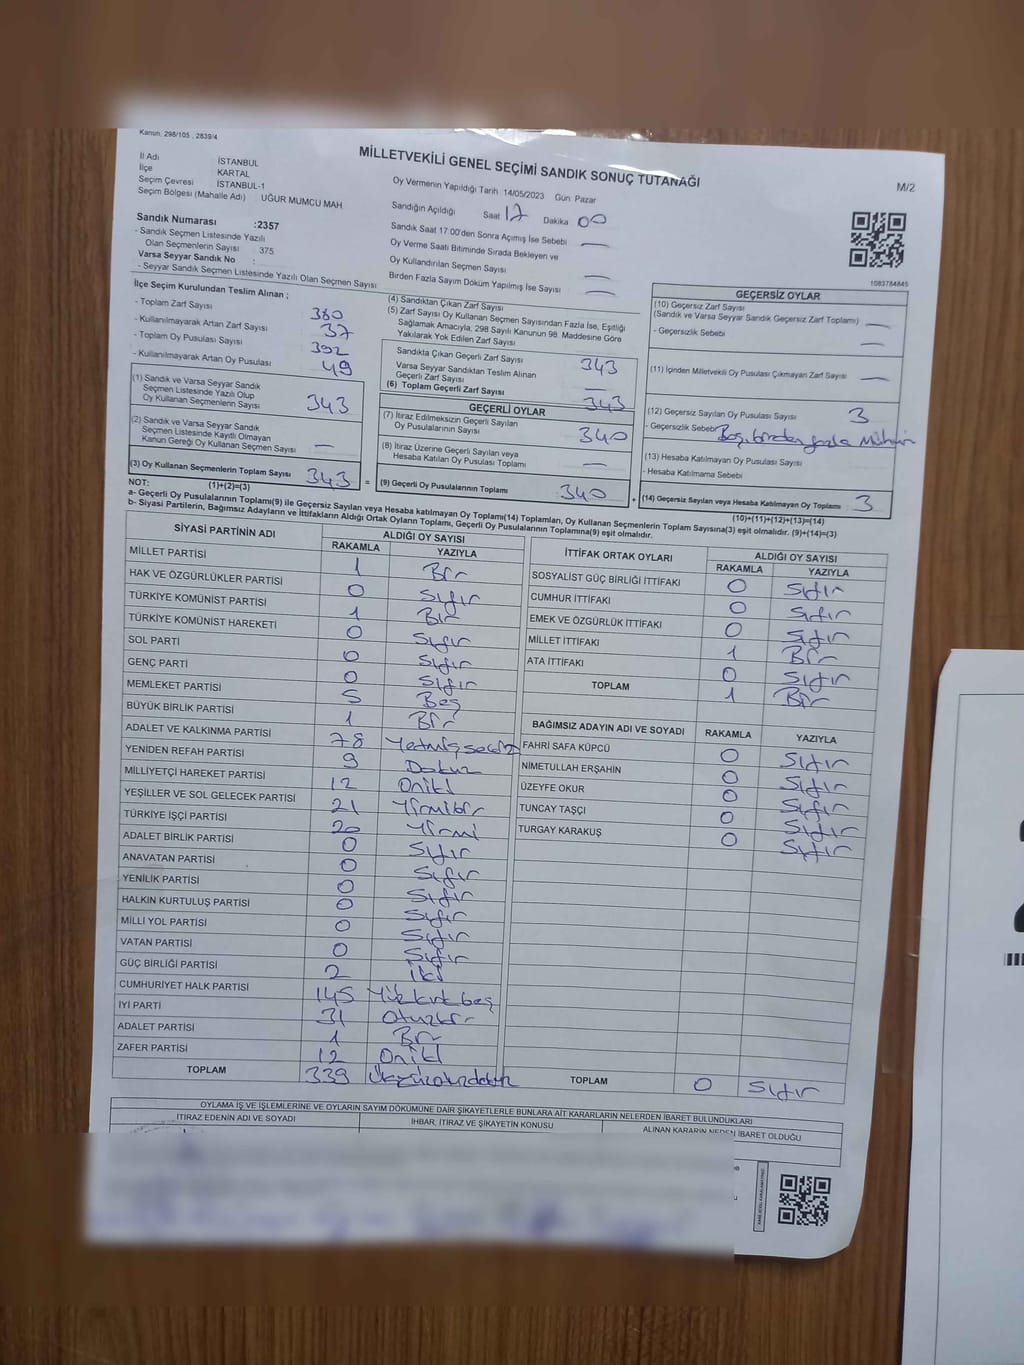 Kanun, 298/105 , 2839/4
MİLLETVEKİLİ GENEL SEÇİMİ SANDIK SONUÇ TUTANAĞI
M/2
İl Adı İSTANBUL
İlçe KARTAL
Seçim Çevresi İSTANBUL-1
Seçim Bölgesi (Mahalle Adı) UĞUR MUMCU MAH.
Sandık Numarası :2357
- Sandık Seçmen Listesinde Yazılı
Olan Seçmenlerin Sayısı : 375
Varsa Seyyar Sandık No :
- Seyyar Sandık Seçmen Listesinde Yazılı Olan Seçmen Sayısı
Oy Vermenin Yapıldığı Tarih 14/05/2023 Gün Pazar
Sandığın Açıldığı Saat 17 Dakika 00
Sandık Saat 17:00'den Sonra Açımış İse Sebebi —
Oy Verme Saati Bitiminde Sırada Bekleyen ve
Oy Kullandırılan Seçmen Sayısı —
Birden Fazla Sayım Döküm Yapılmış İse Sayısı —
1083784845
İlçe Seçim Kurulundan Teslim Alınan ;
- Toplam Zarf Sayısı 380
- Kullanılmayarak Artan Zarf Sayısı 37
- Toplam Oy Pusulası Sayısı 392
- Kullanılmayarak Artan Oy Pusulası 49
(1) Sandık ve Varsa Seyyar Sandık
Seçmen Listesinde Yazılı Olup
Oy Kullanan Seçmenlerin Sayısı 343
(2) Sandık ve Varsa Seyyar Sandık
Seçmen Listesinde Kayıtlı Olmayan
Kanun Gereği Oy Kullanan Seçmen Sayısı —
(3) Oy Kullanan Seçmenlerin Toplam Sayısı 343 =
(4) Sandıktan Çıkan Zarf Sayısı
(5) Zarf Sayısı Oy Kullanan Seçmen Sayısından Fazla İse, Eşitliği
Sağlamak Amacıyla; 298 Sayılı Kanunun 98. Maddesine Göre
Yakılarak Yok Edilen Zarf Sayısı
Sandıkla Çıkan Geçerli Zarf Sayısı 343
Varsa Seyyar Sandıktan Teslim Alınan
Geçerli Zarf Sayısı —
(6) Toplam Geçerli Zarf Sayısı 343
GEÇERLİ OYLAR
(7) İtiraz Edilmeksizin Geçerli Sayılan
Oy Pusulalarının Sayısı 340
(8) İtiraz Üzerine Geçerli Sayılan veya
Hesaba Katılan Oy Pusulası Toplamı —
(9) Geçerli Oy Pusulalarının Toplamı 340 +
GEÇERSİZ OYLAR
(10) Geçersiz Zarf Sayısı
(Sandık ve Varsa Seyyar Sandık Geçersiz Zarf Toplamı) —
- Geçersizlik Sebebi —
(11) İçinden Milletvekili Oy Pusulası Çıkmayan Zarf Sayısı —
(12) Geçersiz Sayılan Oy Pusulası Sayısı 3
- Geçersizlik Sebebi Boş, birden fazla Mühür
(13) Hesaba Katılmayan Oy Pusulası Sayısı
- Hesaba Katılmama Sebebi
(14) Geçersiz Sayılan veya Hesaba Katılmayan Oy Toplamı 3
NOT: (1)+(2)=(3)
(10)+(11)+(12)+(13)=(14)
a- Geçerli Oy Pusulalarının Toplamı(9) ile Geçersiz Sayılan veya Hesaba Katılmayan Oy Toplamı(14) Toplamları, Oy Kullanan Seçmenlerin Toplam Sayısına(3) eşit olmalıdır. (9)+(14)=(3)
b- Siyasi Partilerin, Bağımsız Adayların ve İttifakların Aldığı Ortak Oyların Toplamı, Geçerli Oy Pusulalarının Toplamına(9) eşit olmalıdır.
SİYASİ PARTİNİN ADI ALDIĞI OY SAYISI
RAKAMLA YAZIYLA
MİLLET PARTİSİ 1 Bir
HAK VE ÖZGÜRLÜKLER PARTİSİ 0 Sıfır
TÜRKİYE KOMÜNİST PARTİSİ 1 Bir
TÜRKİYE KOMÜNİST HAREKETİ 0 Sıfır
SOL PARTİ 0 Sıfır
GENÇ PARTİ 0 Sıfır
MEMLEKET PARTİSİ 5 Beş
BÜYÜK BİRLİK PARTİSİ 1 Bir
ADALET VE KALKINMA PARTİSİ 78 Yetmiş sekiz
YENİDEN REFAH PARTİSİ 9 Dokuz
MİLLİYETÇİ HAREKET PARTİSİ 12 Oniki
YEŞİLLER VE SOL GELECEK PARTİSİ 21 Yirmibir
TÜRKİYE İŞÇİ PARTİSİ 20 Yirmi
ADALET BİRLİK PARTİSİ 0 Sıfır
ANAVATAN PARTİSİ 0 Sıfır
YENİLİK PARTİSİ 0 Sıfır
HALKIN KURTULUŞ PARTİSİ 0 Sıfır
MİLLİ YOL PARTİSİ 0 Sıfır
VATAN PARTİSİ 0 Sıfır
GÜÇ BİRLİĞİ PARTİSİ 2 İki
CUMHURİYET HALK PARTİSİ 145 Yüzkırkbeş
İYİ PARTİ 31 Otuzbir
ADALET PARTİSİ 1 Bir
ZAFER PARTİSİ 12 Oniki
TOPLAM 339 Üçyüzotuzdokuz
İTTİFAK ORTAK OYLARI ALDIĞI OY SAYISI
RAKAMLA YAZIYLA
SOSYALİST GÜÇ BİRLİĞİ İTTİFAKI 0 Sıfır
CUMHUR İTTİFAKI 0 Sıfır
EMEK VE ÖZGÜRLÜK İTTİFAKI 0 Sıfır
MİLLET İTTİFAKI 1 Bir
ATA İTTİFAKI 0 Sıfır
TOPLAM 1 Bir
BAĞIMSIZ ADAYIN ADI VE SOYADI RAKAMLA YAZIYLA
FAHRİ SAFA KÜPCÜ 0 Sıfır
NİMETULLAH ERŞAHİN 0 Sıfır
ÜZEYFE OKUR 0 Sıfır
TUNCAY TAŞÇI 0 Sıfır
TURGAY KARAKUŞ 0 Sıfır
TOPLAM 0 Sıfır
OYLAMA İŞ VE İŞLEMLERİNE VE OYLARIN SAYIM DÖKÜMÜNE DAİR ŞİKAYETLERLE BUNLARA AİT KARARLARIN NELERDEN İBARET BULUNDUKLARI
İTİRAZ EDENİN ADI VE SOYADI İHBAR, İTİRAZ VE ŞİKAYETİN KONUSU ALINAN KARARIN NEDEN İBARET OLDUĞU